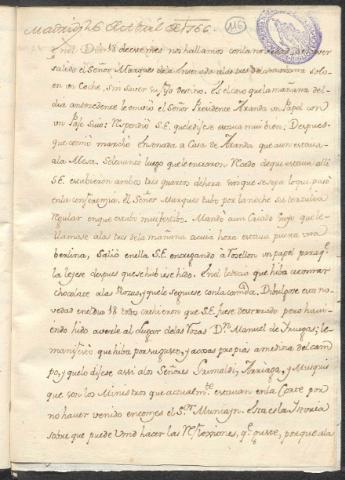 Madrid y 26 Abril de 1766.
116
En el Dia 18 de este mes nos hallamos con la novedad de haver
salido el Señor Marques de la Ensenada a las tres de la mañana solo
en un Coche, sin saver su destino. Es el caso que la mañana del
dia antecedente le envio el Señor Presidente Aranda un Papel con
un Paje suio: Respondió S.E. que le dijese estava mui bien; Despues
que comio marchó en Casa de Aranda que aun estava
a la Mesa. Se levantó luego que le entraron Recado de que estava alli
S.E. estubieron ambos tres quartos de hora sin que se sepa lo que pasó
en la conferencia. El Señor Marques tubo por la noche su tertulia
regular en que estubo mui festibo. Mandó a un Criado suyo que le
llamase a las tres de la mañana a cuia hora estava puesta una
berlina, salió en ella S.E. entregando a un Papel para q.e
la leyese despues que se hubiese hido. En el decia que hiba a tomar
chocolate a las Rozas, y que le seguiese con la comida. Divulgose esta no-
vedad en el dia 18 todos creieron que S.E. fuese desterrado pero havi-
endo hido a verle al Lugar de las Rozas D.n Manuel de le
manifestó que hiba por su gusto, y a cosas propias a Medina del Cam-
po, y que lo dijese assi a los Señores Grimaldi, Arriaga, y Musquiz
que son los Ministros que actualm.te estavan en la Corte por
no haver venido entonces el S.or Muniain. Esta es la Istoria
sobre que puede Vmd hacer las Reflexiones, q.e guste, porque a la